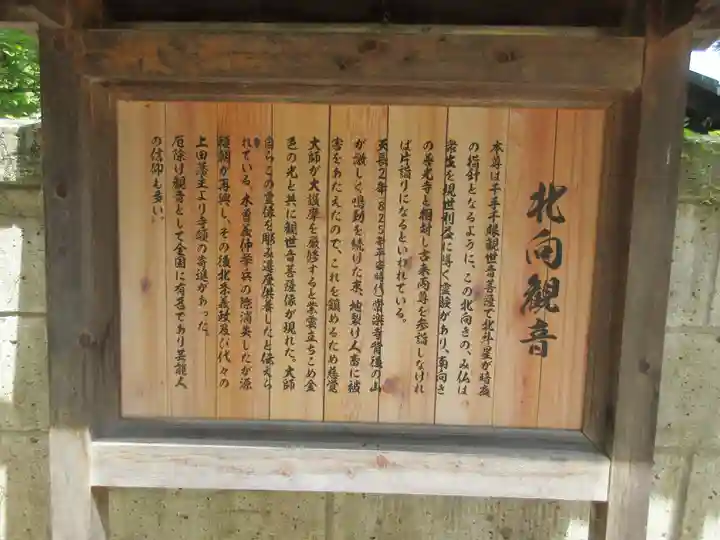 北向観音
本尊は千手千眼観世音菩薩で北斗星が暗夜
の指針となるように、この北向きの、み仏は
衆生を現世利益に導く霊験があり、南向き
の善光寺と相対し古来両尊を参詣しなけれ
ば片詣りになるといわれている。
天長2年(825年平安時代)常楽寺背後の山
が激しく鳴動を続けた末、地裂け人畜に被
害をあたえたので、これを鎮めるため慈覚
大師が大護摩を厳修すると紫雲立ちこめ金
色の光と共に観世音菩薩像が現れた。大師
自らこの霊像を彫み遷座供養したと伝えら
れている。木曽義仲挙兵の際消失したが源
頼朝が再興し、その後北条義政及び代々の
上田藩主より寺領の寄進があった。
厄除け観音として全国に有名であり芸能人
の信仰も多い。